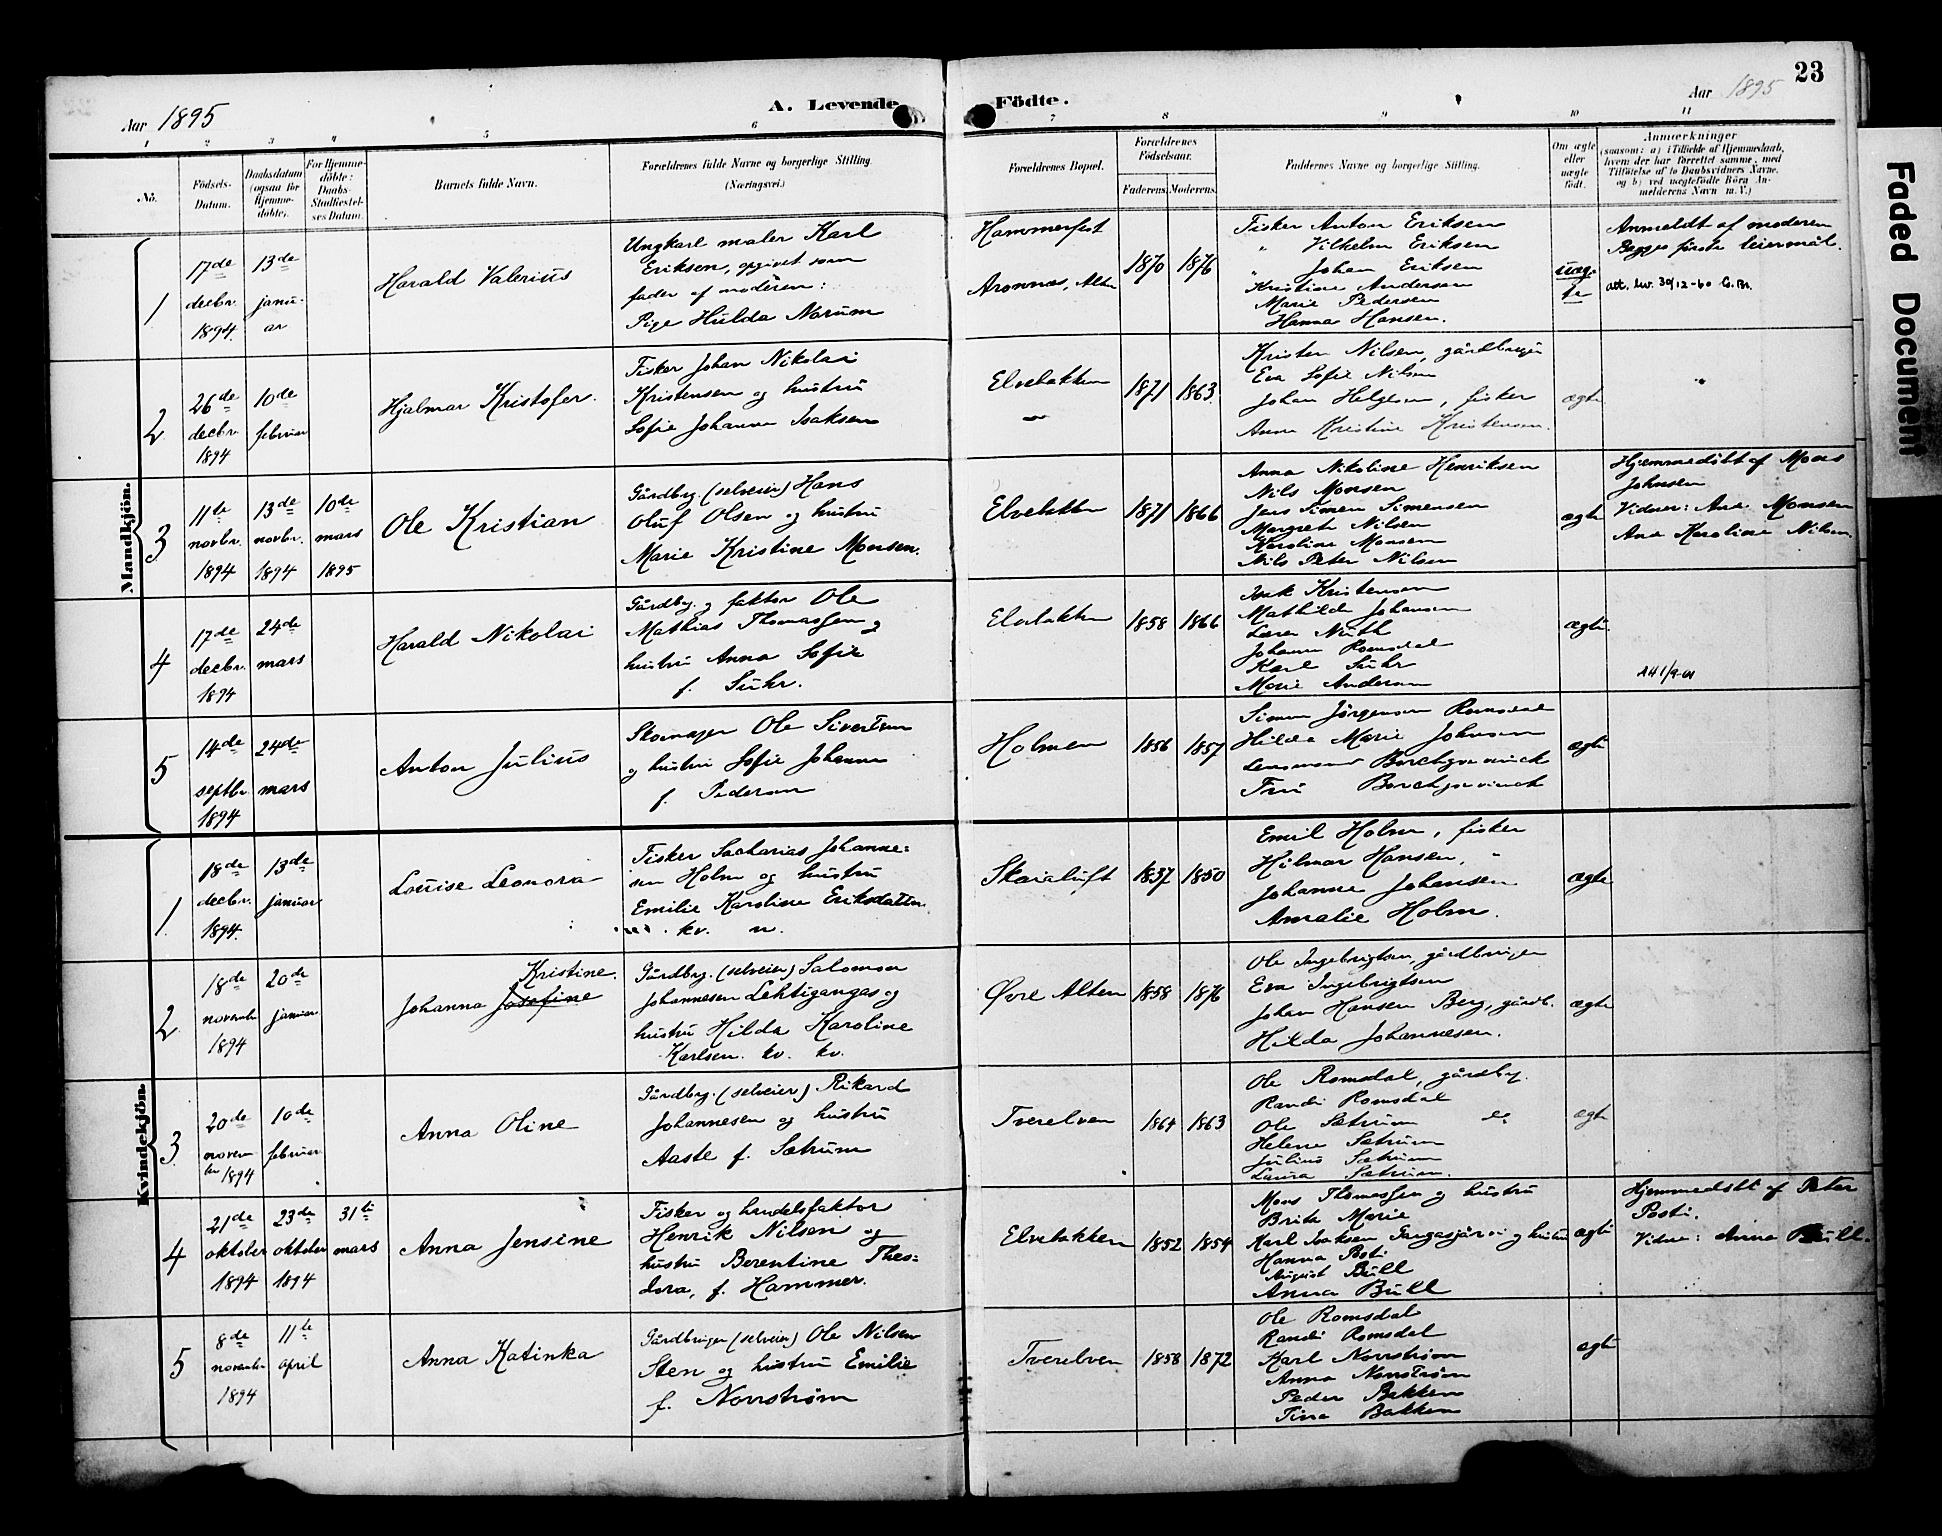 Aar 1895
A. Levende Födte.
Aar 1895
23
Faded Document
1 2 3 4 5 6 7 8 9 10 11
No.
Födsels-
Datum.
Daabsdatum
(ogsaa for
Hjemme-
döbte).
For Hjemme-
döbte:
Daabs-
Stadfæstel-
ses Datum.
Barnets fulde Navn.
Forældrenes fulde Navne og borgerlige Stilling.
(Næringsvei.)
Forældrenes Bopæl.
Forældrenes
Födselsaar.
Faderens. Moderens.
Faddernes Navne og borgerlige Stilling.
Om ægte
eller
uægte
födt.
Anmærkninger
(saasom: a) i Tilfælde af Hjemmedaab,
hvem der har forrettet samme, med
Tilföielse af to Daabsvidners Navne,
og b) ved uægtefödte Börn An-
melderens Navn m. V.)
Mandkjön.
1
17de
decbr.
1894.
13de
janu-
ar
Harald Valerius
Ungkarl maler Karl
Eriksen, opgivet som
fader af moderen:
Pige Hulda Norum
Hammerfest
Aronnes, Alten
1870
1876
Fisker Anton Eriksen
" Vilhelm Eriksen
" Johan Eriksen
Kristine Andersen
Marie Pedersen
Hanna Hansen.
uæg-
te
Anmeldt af moderen
Begges første leiermål.
att. utv. 30/12-60 G.Br.
2
26de
decbr.
1894
10de
februar
Hjalmar Kristofer.
Fisker Johan Nikolai
Kristensen og hustru
Sofie Johanna Isaksen
Elvebakken
1871
1863
Kristen Nilsen, gårdbruger
Eva Sofie Nilsen
Johan Helgesen, fisker
Anna Kristine Kristensen.
ægte
"
3
11te
novbr.
1894
13de
novbr.
1894
10de
mars
1895
Ole Kristian
Gårdbg. (selveier) Hans
Oluf Olsen og hustru
Marie Kristine Monsen.
Elvebakken
1871
1866
Anna Nikoline Henriksen
Nils Monsen
Jens Simon Simensen
Margrete Nilsen
Karoline Monsen
Nils Peter Nilsen
ægte
Hjemmedøbt af Mons
Johnsen
Vidner: Ane Monsen
Ane Karoline Nilsen.
4
17de
decbr.
1894
24de
mars
Harald Nikolai
Gårdbg. og faktor Ole
Mathias Thomassen og
hustru Anna Sofie
f. Suhr.
Elvebakken
1858
1866
Isak Kristensen
Mathilde Johansen
Lærer Nuth
Johanna Romsdal
Karl Suhr
Marie Andersen
ægte.
5
14de
septbr.
1894
24de
mars
Anton Julius
Skomager Ole Sivertsen
og hustru Sofie Johanna
f. Pedersen
Holmen
1856
1857
Simon Jörgensen Romsdal
Hilda Marie Johnsen
Lensmand Borchgrevinck
Fru Borchgrevinck
ægte
Kvindekjön.
1
18de
decbr.
1894.
13de
januar
Louise Leonora
Fisker Sacharias Johanne-
sen Holm og hustru
Emilie Karoline Eriksdatter.
kv. n.
Skaialuft
1837
1850
Emil Holm, fisker
Hilmar Hansen, "
Johanne Johansen
Amalie Holm.
ægte
2
18de
novembr
1894
20de
januar
Kristine.
Johanna Josefine
Gårdbrg. (selveier) Salomon
Johannesen Lehtigangas og
hustru Hilda Karoline
Karlsen. kv. kv.
Øvre Alten
1858
1876
Ole Ingebrigtsen, gårdbruger
Eva Ingebrigtsen
Johan Hansen Berg, gårdb.
Hilda Johannesen.
ægte
3
20de
novem-
br 1894
10de
februar
Anna Oline
Gårdbrg. (selveier) Rikard
Johannesen og hustru
Aaste f. Sætrum
Tverelven
1864
1863
Ole Romsdal, gårdbg.
Randi Romsdal
Ole Sætrum
Helene Sætrum
Julius Sætrum
Laura Sætrum.
ægte
4
21de
oktober
1894
23de
oktober
1894
31te
mars
Anna Jensine
Fisker og handelsfaktor
Henrik Nilsen og
hustru Berentine Theo-
dora, f. Hammer.
Elvebakken
1852
1854
Mons Thomassen og hustru
Brita Marie
Karl Isaksen Gargasjärvi og hustru
Hanna Posti
August Bull
Anna Bull
ægte
Hjemmedøbt af Peter
Posti.
Vidne: Anna Bull.
5
8de
novembr
1894
11te
april
Anna Katinka
Gårdbruger (selveier) Ole Nilsen
Sten og hustru Emilie
f. Norrström
Tverelven
1858
1872
Ole Romsdal
Randi Romsdal
Karl Norrström
Anna Norrström
Peder Bakken
Tina Bakken
ægte